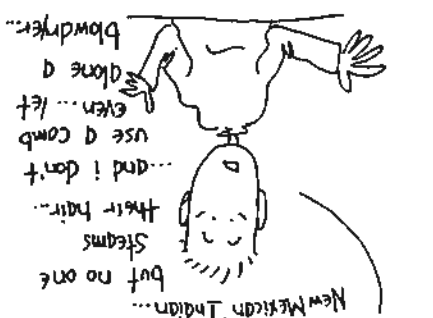 New Mexican Indian...
but no one
steams
their hair...
...and i don't
use a comb
even... let
alone a
blowdryer...